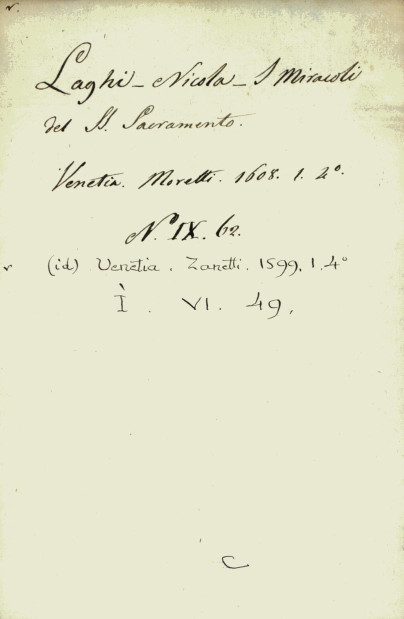 v.
Laghi - Nicola - I Miracoli
del SS. Sacramento.
Venetia. Moretti. 1608. 1. 2º.
N. IX. 62.
v (id) Venetia. Zanetti. 1599. 1. 4º
Ì. VI. 49.
C